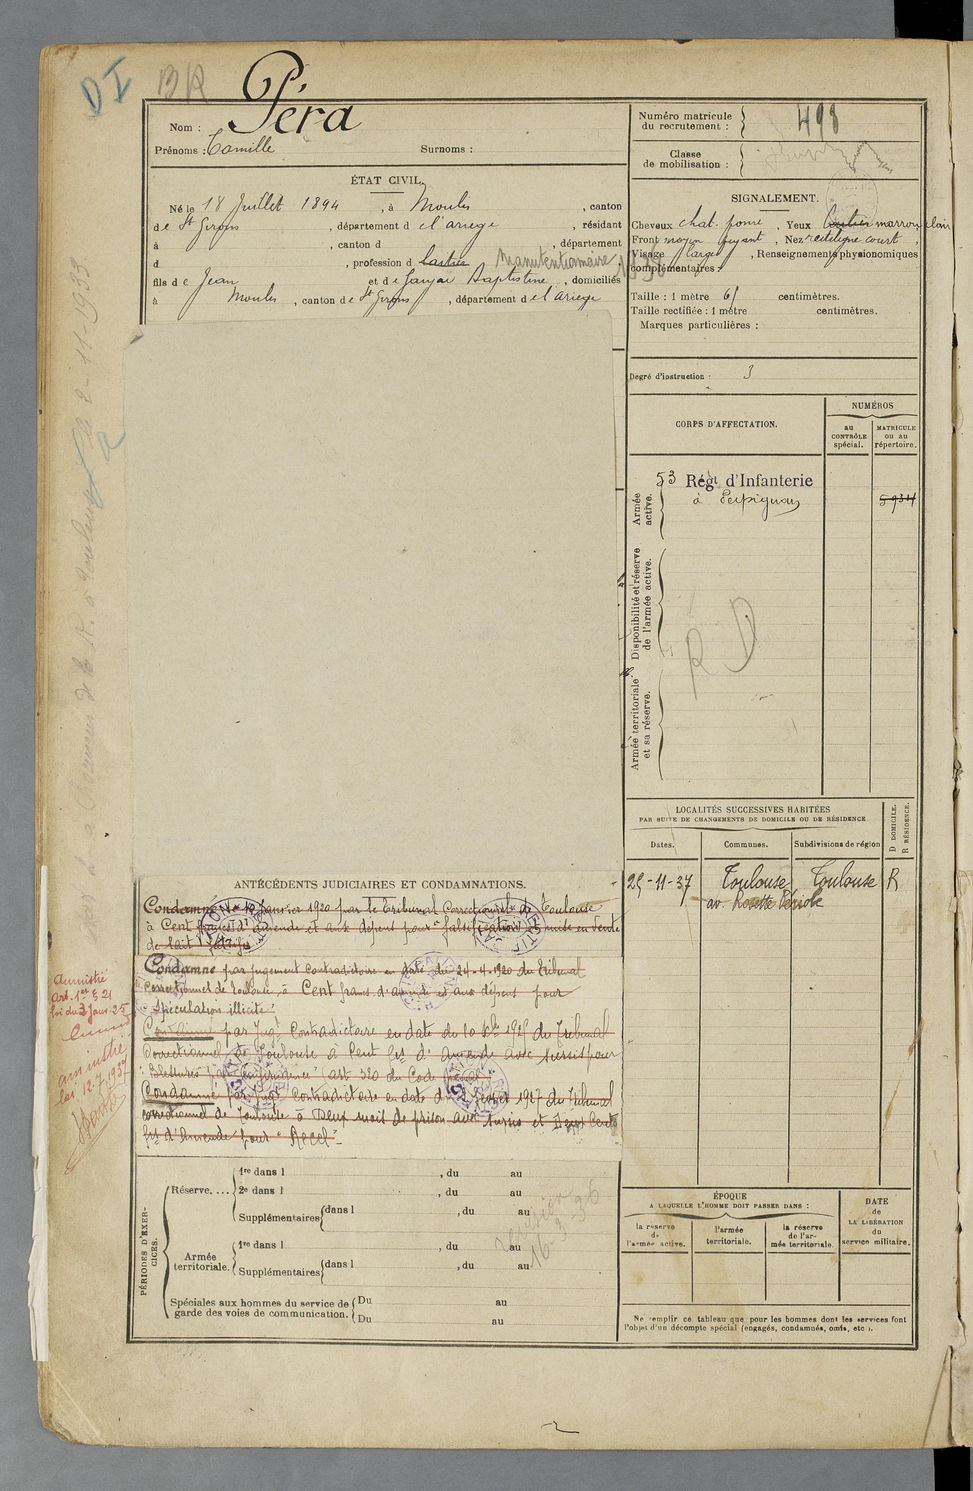 DI
BR
Péra
Nom :
Prénoms : Camille
Surnoms :
ÉTAT CIVIL.
Né le 18 Juillet 1894, à Moulis, canton
de St Girons, département d e l'ariege, résidant
à , canton d , département
d , profession d Manutentionnaire
fils de Jean et de Baptistine, domiciliés
à Moulis, canton de St Girons, département d e l'ariege
Numéro matricule
du recrutement :
498
Classe
de mobilisation :
SIGNALEMENT.
Cheveux chat. foncé, Yeux marron clair
Front moyen fuyant, Nez rectiligne court,
Visage large, Renseignements physionomiques
complémentaires :
Taille : 1 mètre 61 centimètres.
Taille rectifiée : 1 mètre centimètres.
Marques particulières :
Degré d'instruction : 3
CORPS D'AFFECTATION.
NUMÉROS
au
CONTRÔLE
spécial.
MATRICULE
ou au
répertoire.
Armée
active.
53 Régt d'Infanterie
à Perpignan
5934
Disponibilité et réserve
de l'armée active.
R D
Armée territoriale
et sa réserve.
LOCALITÉS SUCCESSIVES HABITÉES
PAR SUITE DE CHANGEMENTS DE DOMICILE OU DE RÉSIDENCE.
Dates.
Communes.
Subdivisions de région
D DOMICILE.
R RÉSIDENCE.
25-11-37 Toulouse Toulouse R
av.
ANTÉCÉDENTS JUDICIAIRES ET CONDAMNATIONS.
Condamné le Janvier 1920 par le Tribunal Correctionnel de Toulouse
à Cent francs d'amende et aux dépens pour "falsification et mise en vente
de lait falsifié"
Condamné par jugement contradictoire en date du 24-4-1920 du Tribunal
Correctionnel de Toulouse, à Cent francs d'amende et aux dépens pour
"Spéculation illicite"
Condamné par Jugt Contradictoire en date du 10 1925 du Tribunal
Correctionnel de Toulouse à Cent frs d'amende avec sursis pour
"Blessures par imprudence" (art 320 du Code pénal)
Condamné par Jugt Contradictoire en date du février 1927 du Tribunal
correctionnel de Toulouse à Deux mois de prison avec sursis et Deux Cents
frs d'Amende pour "Recel"
Amnistié
art. 1er § 21
loi du 3 Janv. 25
amnistié
loi 12.7.1937
PÉRIODES D'EXER-
CICES.
Réserve....
1re dans l , du au
2e dans l , du au
Supplémentaires
dans l , du au
, du au
Armée
territoriale.
1re dans l , du au
Supplémentaires
dans l , du au
Spéciales aux hommes du service de
garde des voies de communication.
Du au
Du au
révision
16-3-36
ÉPOQUE
A LAQUELLE L'HOMME DOIT PASSER DANS :
la réserve
de
l'armée active.
l'armée
territoriale.
la réserve
de l'ar-
mée territoriale.
DATE
de
LA LIBÉRATION
du
service militaire.
Ne remplir ce tableau que pour les hommes dont les services font
l'objet d'un décompte spécial (engagés, condamnés, omis, etc.).